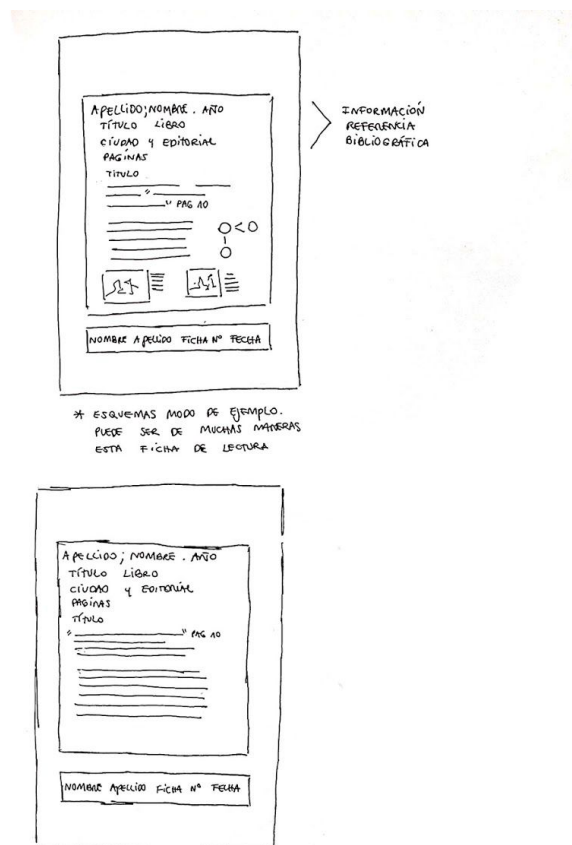 APELLIDO; NOMBRE. AÑO
TÍTULO LIBRO
CIUDAD Y EDITORIAL
PAGINAS
TITULO
"
" PAG 10
NOMBRE APELLIDO FICHA Nº FECHA
INFORMACIÓN
REFERENCIA
BIBLIOGRÁFICA
* ESQUEMAS MODO DE EJEMPLO.
PUEDE SER DE MUCHAS MANERAS
ESTA FICHA DE LECTURA
APELLIDO; NOMBRE. AÑO
TÍTULO LIBRO
CIUDAD Y EDITORIAL
PAGINAS
TÍTULO
" " PAG 10
NOMBRE APELLIDO FICHA Nº FECHA